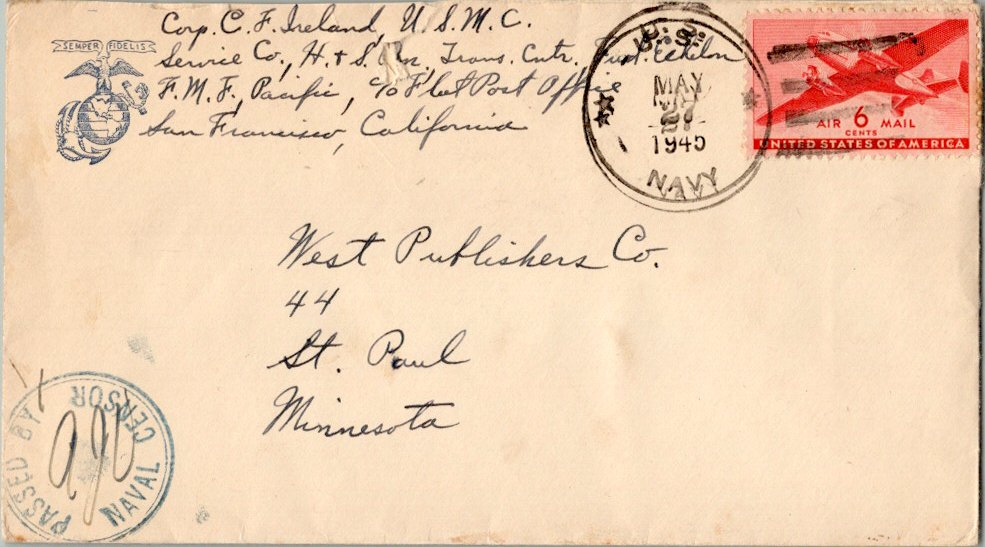 SEMPER FIDELIS
Corp. C. F. Ireland, U.S.M.C.
Service Co., H. & S. Bn. Trans. Cntr. Echelon
F.M.F. Pacific, c/o Fleet Post Office
San Francisco, California
U.S.
MAY
1945
NAVY
AIR 6 MAIL
CENTS
UNITED STATES OF AMERICA
West Publishers Co.
44
St. Paul
Minnesota
PASSED BY
NAVAL CENSOR